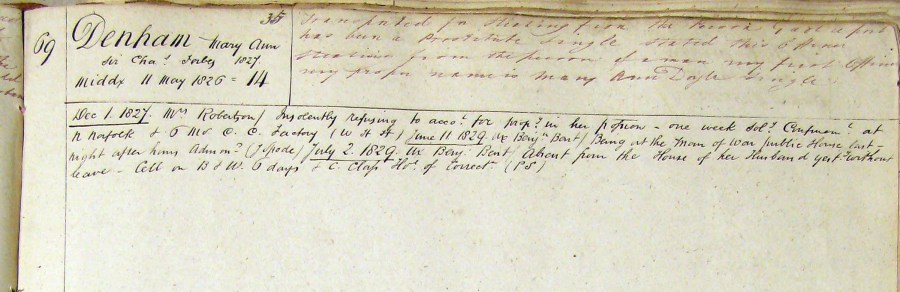 35
69
Denham Mary Ann
Sir Chas Forbes 1827.
Middx 11 May 1826 = 14
Transported for Stealing from the Person Gaol report
has been a Prostitute Single Stated this Offence
Stealing from the person of a man my first Offence
my proper name is Mary Ann Doyle Single
Dec 1. 1827. Mrs Robertson / Insolently refusing to acct for propy in her possion - one week Soly Confinemt at
N Norfolk & 6 Mo C. C. Factory (W H H) June 11 1829. Ux Benjn Bent / Being at the Man of War public House last
night after hours Admond (J Spode) July 2. 1829. Ux Benj. Bent / Absent from the House of her Husband yesty without
leave - Cell on B & W. 6 days & C. Class Ho. of Correct. (PS)